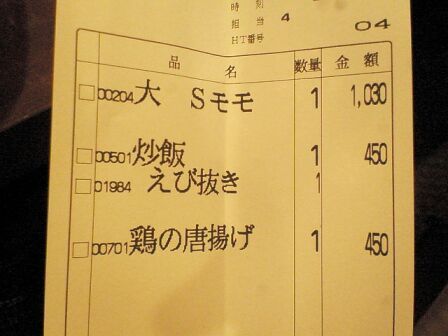 時 刻
担 当 4
HT番号 04
品 名 数量 金 額
00204 大 Sモモ 1 1,030
00501 炒飯 1 450
01984 えび抜き 1
00701 鶏の唐揚げ 1 450